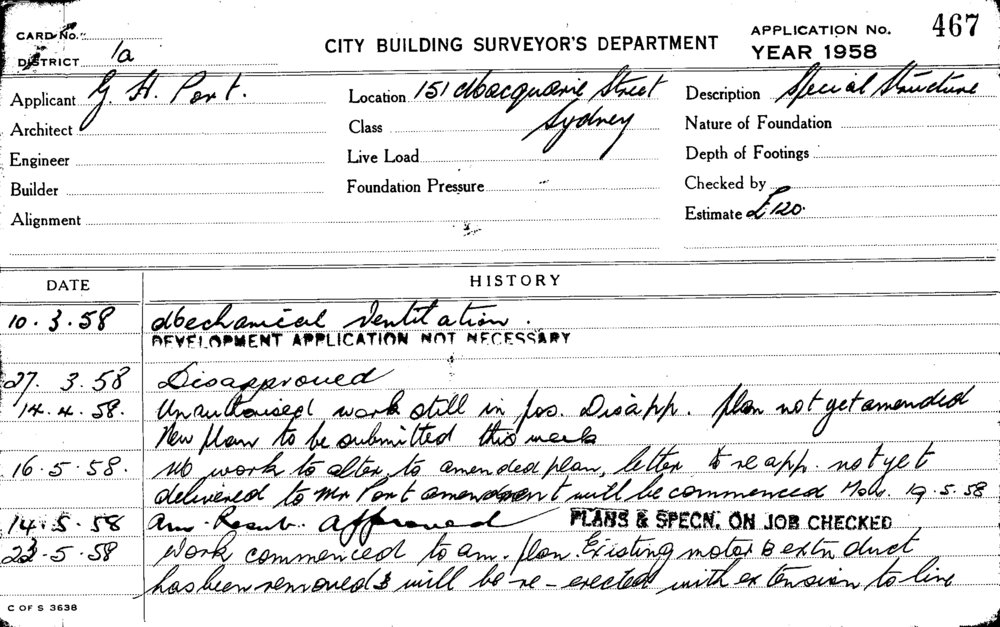 CARD No.
DISTRICT 1a
CITY BUILDING SURVEYOR'S DEPARTMENT
APPLICATION No. 467
YEAR 1958
Applicant G. H. Port.
Location 151 Macquarie Street
Sydney
Description Special Structure
Architect
Class
Nature of Foundation
Engineer
Live Load
Depth of Footings
Builder
Foundation Pressure
Checked by
Alignment
Estimate £120.
DATE HISTORY
10.3.58 Mechanical Ventilation.
DEVELOPMENT APPLICATION NOT NECESSARY
27.3.58 Disapproved
14.4.58. Unauthorised work still in pos. Disapp. plan not yet amended
New plan to be submitted this week
16.5.58. No work to alter to amended plan, letter to re app. not yet
delivered to Mr Port amendment will be commenced Mon. 19.5.58
14.5.58 am. Resub. approved PLANS & SPECN. ON JOB CHECKED
23.5.58 Work commenced to am. plan. Existing motor & extn duct
has been removed & will be re-erected with extension to line
C OF S 3638